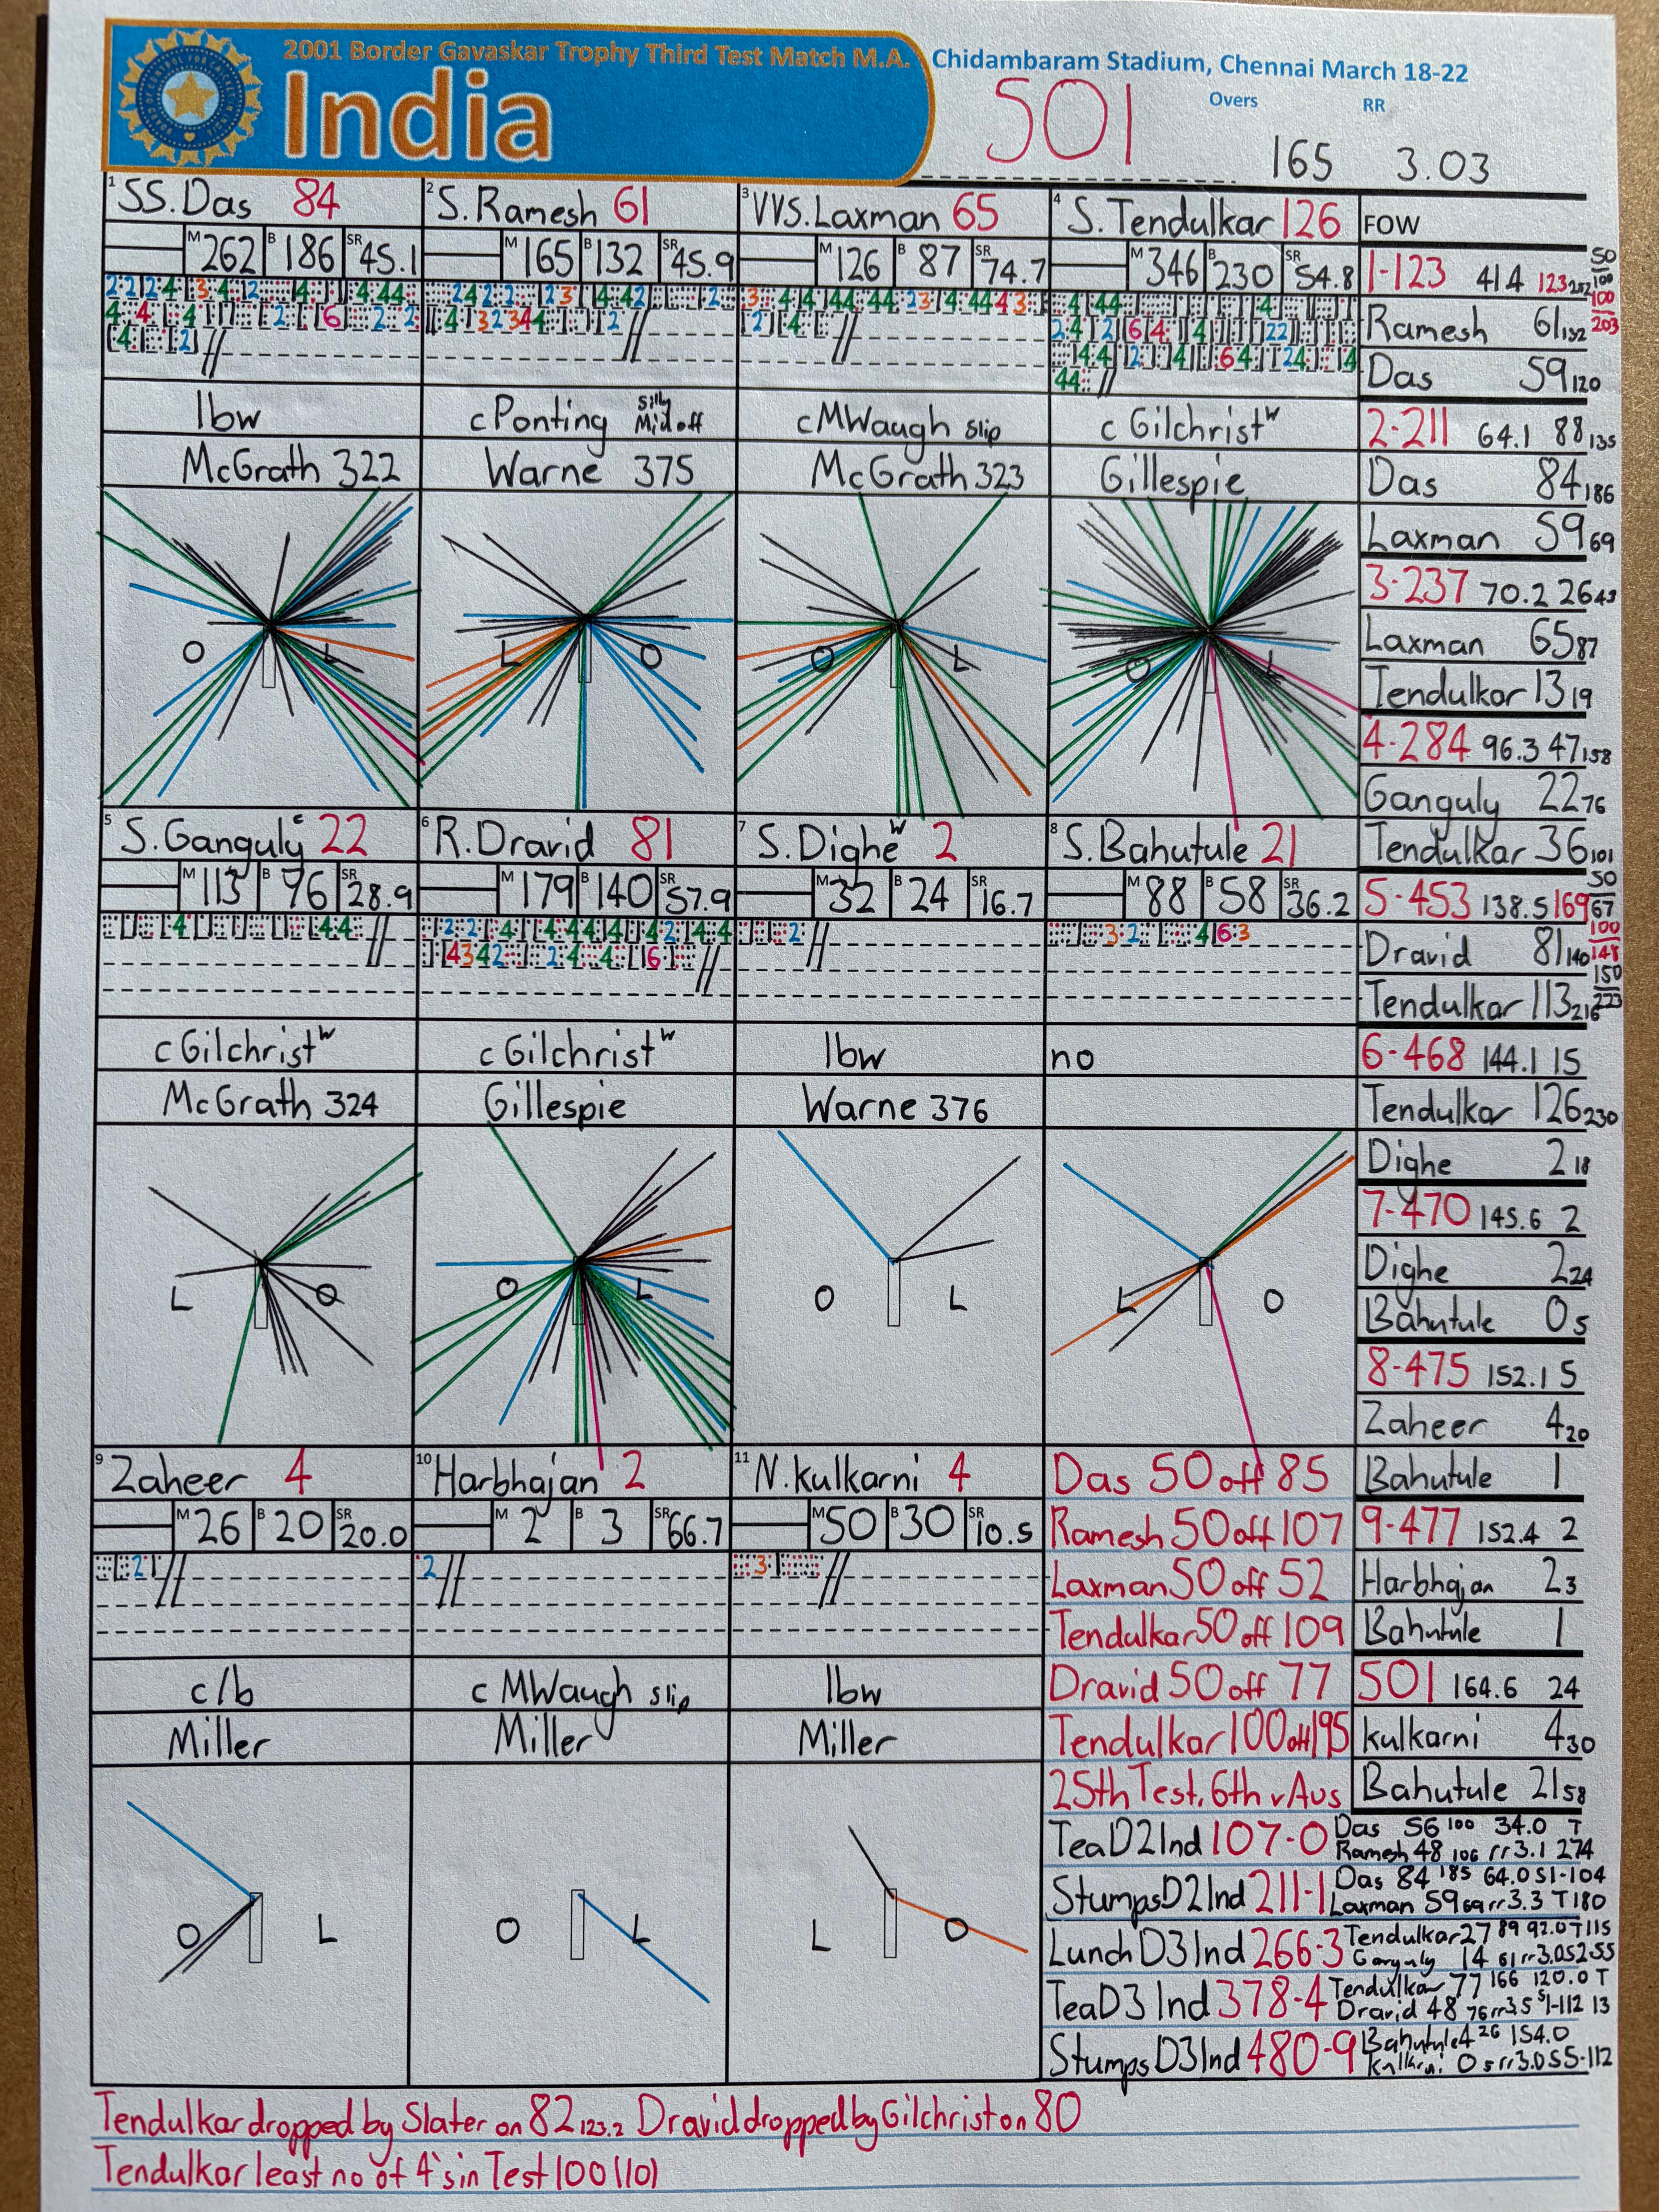 2001 Border Gavaskar Trophy Third Test Match M.A. Chidambaram Stadium, Chennai March 18-22
India
501
Overs RR
165 3.03
1 SS.Das 84
M 262 B 186 SR 45.1
lbw
McGrath 322
O L
2 S.Ramesh 61
M 165 B 132 SR 45.9
c Ponting Silly Mid off
Warne 375
L O
3 VVS.Laxman 65
M 126 B 87 SR 74.7
c MWaugh slip
McGrath 323
O L
4 S.Tendulkar 126
M 346 B 230 SR 54.8
c Gilchrist w
Gillespie
O L
5 S.Ganguly c 22
M 113 B 76 SR 28.9
c Gilchrist w
McGrath 324
L O
6 R.Dravid 81
M 179 B 140 SR 57.9
c Gilchrist w
Gillespie
O L
7 S.Dighe w 2
M 32 B 24 SR 16.7
lbw
Warne 376
O L
8 S.Bahutule 21
M 88 B 58 SR 36.2
no
L O
9 Zaheer 4
M 26 B 20 SR 20.0
c/b
Miller
O L
10 Harbhajan 2
M 2 B 3 SR 66.7
c MWaugh slip
Miller
O L
11 N.Kulkarni 4
M 50 B 30 SR 10.5
lbw
Miller
L O
FOW
1-123 41.4 123 252
50
100
100
203
Ramesh 61 132
Das 59 120
2-211 64.1 88 135
Das 84 186
Laxman 59 69
3-237 70.2 26 43
Laxman 65 87
Tendulkar 13 19
4-284 96.3 47 158
Ganguly 22 76
Tendulkar 36 101
5-453 138.5 169
50
67
100
148
150
223
Dravid 81 140
Tendulkar 113 216
6-468 144.1 15
Tendulkar 126 230
Dighe 2 18
7-470 145.6 2
Dighe 2 24
Bahutule 0 5
8-475 152.1 5
Zaheer 4 20
Bahutule 1
9-477 152.4 2
Harbhajan 2 3
Bahutule 1
501 164.6 24
Kulkarni 4 30
Bahutule 21 58
Das 50 off 85
Ramesh 50 off 107
Laxman 50 off 52
Tendulkar 50 off 109
Dravid 50 off 77
Tendulkar 100 off 195
25th Test, 6th v Aus
Tea D2 Ind 107-0 Das 56 100 34.0 T
Ramesh 48 106 rr 3.1 274
Stumps D2 Ind 211-1 Das 84 185 64.0 S1-104
Laxman 59 69 rr 3.3 T180
Lunch D3 Ind 266-3 Tendulkar 27 89 92.0 T115
Ganguly 14 61 rr 3.0 S2-55
Tea D3 Ind 378-4 Tendulkar 77 166 120.0 T
Dravid 48 76 rr 3.5 S1-112 13
Stumps D3 Ind 480-9 Bahutule 4 26 154.0
Kulkarni 0 5 rr 3.0 S5-112
Tendulkar dropped by Slater on 82 123.2 Dravid dropped by Gilchrist on 80
Tendulkar least no of 4's in Test 100 (10)